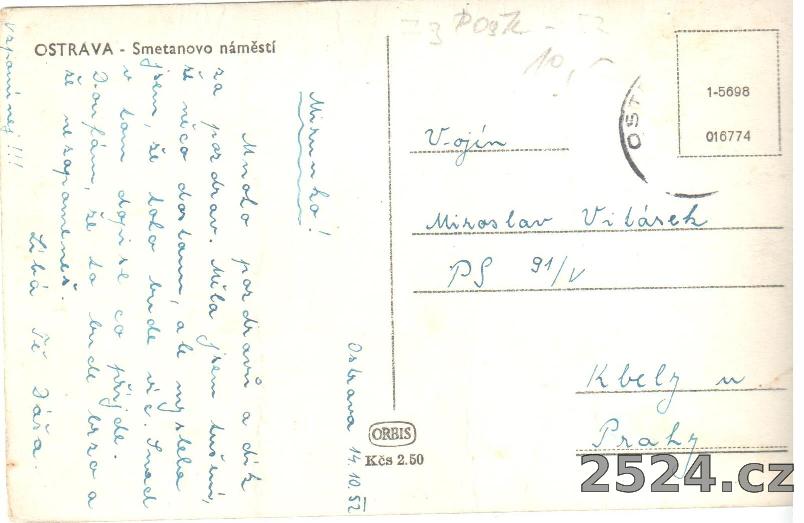 OSTRAVA - Smetanovo náměstí
Mirunko!
Mnoho pozdravů a dík
za pozdrav. Měla jsem tušení,
že něco dostanu, ale myslela
jsem, že toho bude víc. Snad
v tom dopise co přijde.
Doufám, že to bude brzo a
že nezapomeneš.
Líbá Tě Dáša.
Vzpomínej!!!
Ostrava 14.10.52
ORBIS
Kčs 2.50
10,-
1-5698
016774
OST
Vojín
Miroslav Vitásek
PS 91/V
Kbely u
Prahy
2524.cz